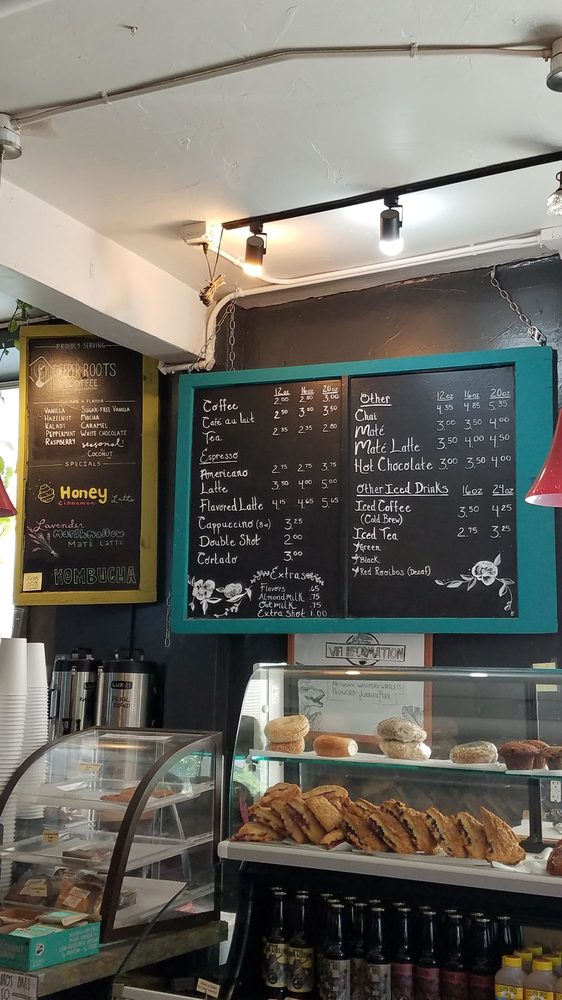 PROUDLY SERVING
ROOTS
COFFEE
ADD A FLAVOR
VANILLA SUGAR-FREE VANILLA
HAZELNUT MOCHA
KALADI CARAMEL
PEPPERMINT WHITE CHOCOLATE
RASPBERRY seasonal:
COCONUT
SPECIALS
Honey Latte
cinnamon
Lavender
Marshmallow
MATÉ LATTE
KOMBUCHA
12oz 16oz 20oz
Coffee 2.00 2.50 3.00
Café au lait 2.50 3.00 3.50
Tea 2.35 2.35 2.80
Espresso
Americano 2.75 2.75 3.75
Latte 3.50 4.00 5.00
Flavored Latte 4.15 4.65 5.65
Cappuccino (8oz) 3.25
Double Shot 2.00
Cortado 3.00
Extras
Flavors .65
Almond Milk .75
Oat Milk .75
Extra Shot 1.00
Other 12oz 16oz 20oz
Chai 4.35 4.85 5.35
Maté 3.00 3.50 4.00
Maté Latte 3.50 4.00 4.50
Hot Chocolate 3.00 3.50 4.00
Other Iced Drinks 16oz 24oz
Iced Coffee 3.50 4.25
(Cold Brew)
Iced Tea 2.75 3.25
Green
Black
Red Rooibos (Decaf)
WIFI INFORMATION
LUX